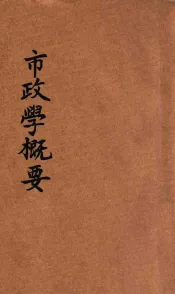 市政學概要